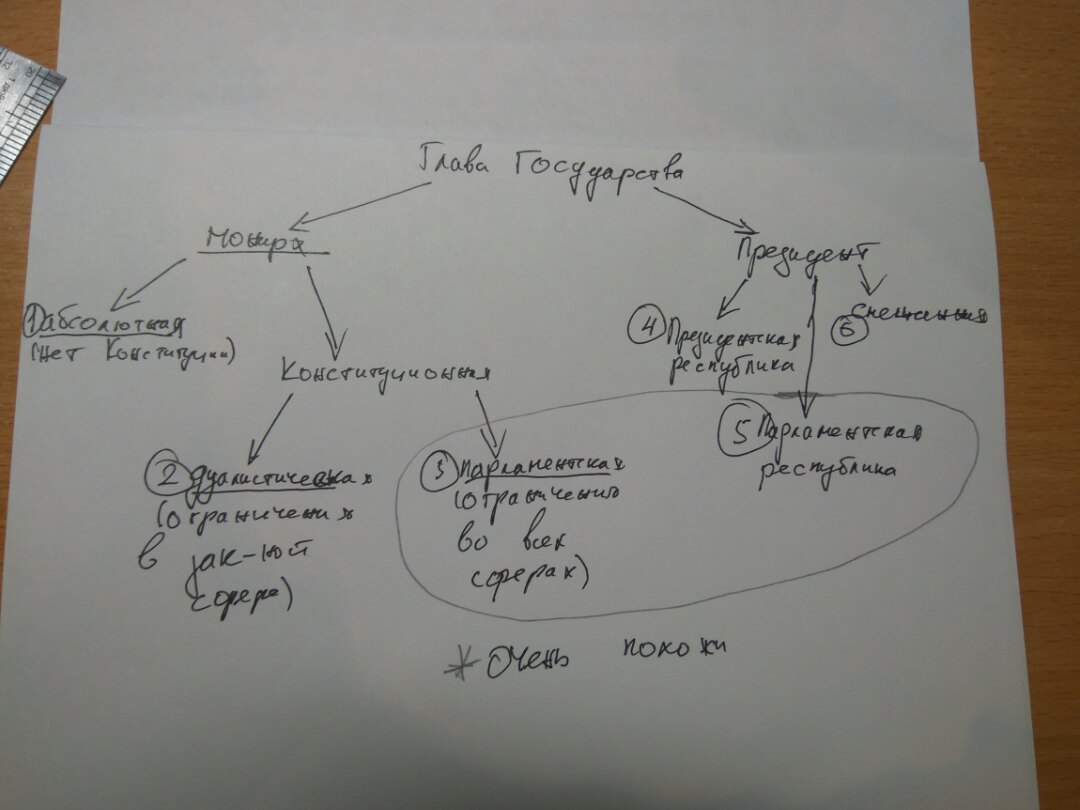 Глава Государства
Монарх
Президент
① абсолютная
(нет Конституции)
Конституционная
④ Президентская
республика
⑥ смешанная
② дуалистическая
(ограничения
в зак-ной
сфере)
③ парламентская
(ограничения
во всех
сферах)
⑤ Парламентская
республика
* Очень похожи